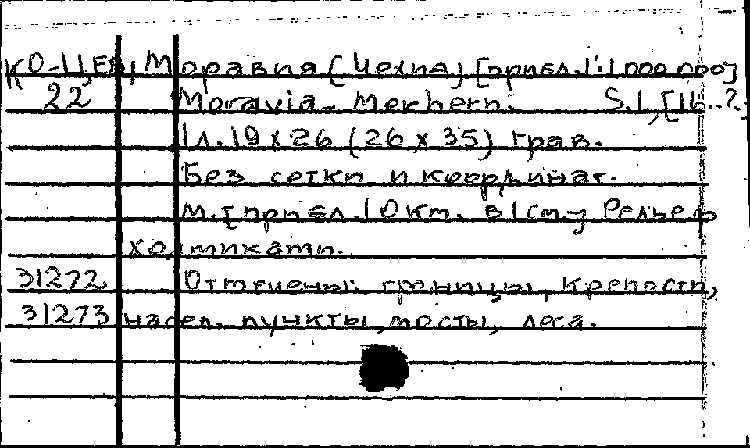 КО-ЦЕВ, Моравия (Чехия) [прибл. 1:1 000 000]
22 Moravia - Merhern. S.l, [16..?]
1 л. 19 x 26 (26 x 35) грав.
Без сетки и координат.
М. [прибл. 10 км. в 1 см.] Рельеф
холмиками.
31272 Отмечены: границы, крепости,
31273 насел. пункты, мосты, леса.